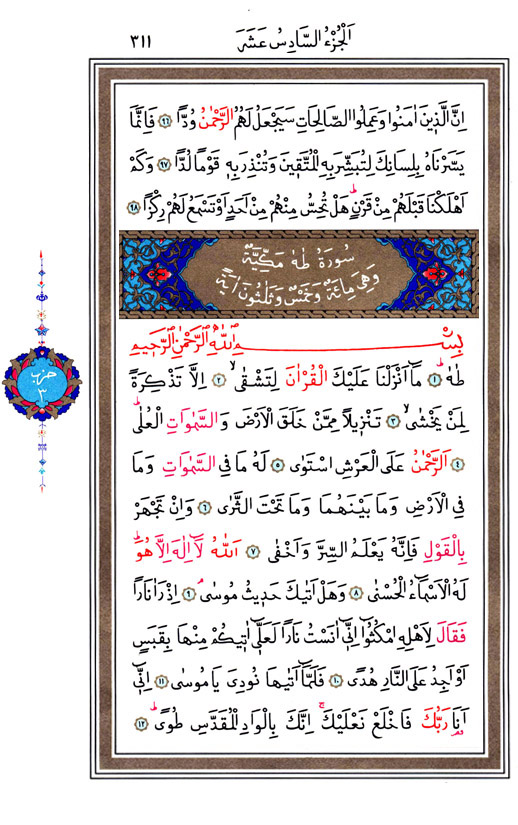 الْجُزْءُ السَّادِسُ عَشَرَ
٣١١
اِنَّ الَّذ۪ينَ اٰمَنُوا وَعَمِلُوا الصَّالِحَاتِ سَيَجْعَلُ لَهُمُ الرَّحْمٰنُ وُدًّا ﴿٩٦﴾ فَاِنَّمَا
يَسَّرْنَاهُ بِلِسَانِكَ لِتُبَشِّرَ بِهِ الْمُتَّق۪ينَ وَتُنْذِرَ بِه۪ قَوْمًا لُدًّا ﴿٩٧﴾ وَكَمْ
اَهْلَكْنَا قَبْلَهُمْ مِنْ قَرْنٍۜ هَلْ تُحِسُّ مِنْهُمْ مِنْ اَحَدٍ اَوْ تَسْمَعُ لَهُمْ رِكْزًا ﴿٩٨﴾
سُورَةُ طٰهٰ مَكِّيَّةٌ
وَهِيَ مِائَةٌ وَخَمْسٌ وَثَلٰثُونَ اٰيَةً
بِسْمِ اللّٰهِ الرَّحْمٰنِ الرَّح۪يمِ
طٰهٰۜ ﴿١﴾ مَٓا اَنْزَلْنَا عَلَيْكَ الْقُرْاٰنَ لِتَشْقٰىۙ ﴿٢﴾ اِلَّا تَذْكِرَةً
لِمَنْ يَخْشٰىۙ ﴿٣﴾ تَنْز۪يلًا مِمَّنْ خَلَقَ الْاَرْضَ وَالسَّمٰوَاتِ الْعُلٰىۜ
﴿٤﴾ اَلرَّحْمٰنُ عَلَى الْعَرْشِ اسْتَوٰى ﴿٥﴾ لَهُ مَا فِي السَّمٰوَاتِ وَمَا
فِي الْاَرْضِ وَمَا بَيْنَهُمَا وَمَا تَحْتَ الثَّرٰى ﴿٦﴾ وَاِنْ تَجْهَرْ
بِالْقَوْلِ فَاِنَّهُ يَعْلَمُ السِّرَّ وَاَخْفٰى ﴿٧﴾ اَللّٰهُ لَٓا اِلٰهَ اِلَّا هُوَۜ
لَهُ الْاَسْمَٓاءُ الْحُسْنٰى ﴿٨﴾ وَهَلْ اَتٰيكَ حَد۪يثُ مُوسٰىۢ ﴿٩﴾ اِذْ رَاٰ نَارًا
فَقَالَ لِاَهْلِهِ امْكُثُٓوا اِنّ۪ٓي اٰنَسْتُ نَارًا لَعَلّ۪ٓي اٰت۪يكُمْ مِنْهَا بِقَبَسٍ
اَوْ اَجِدُ عَلَى النَّارِ هُدًى ﴿١٠﴾ فَلَمَّٓا اَتٰيهَا نُودِيَ يَا مُوسٰى ﴿١١﴾ اِنّ۪ٓي
اَنَا رَبُّكَ فَاخْلَعْ نَعْلَيْكَۚ اِنَّكَ بِالْوَادِ الْمُقَدَّسِ طُوًىۜ ﴿١٢﴾
حزب
٣